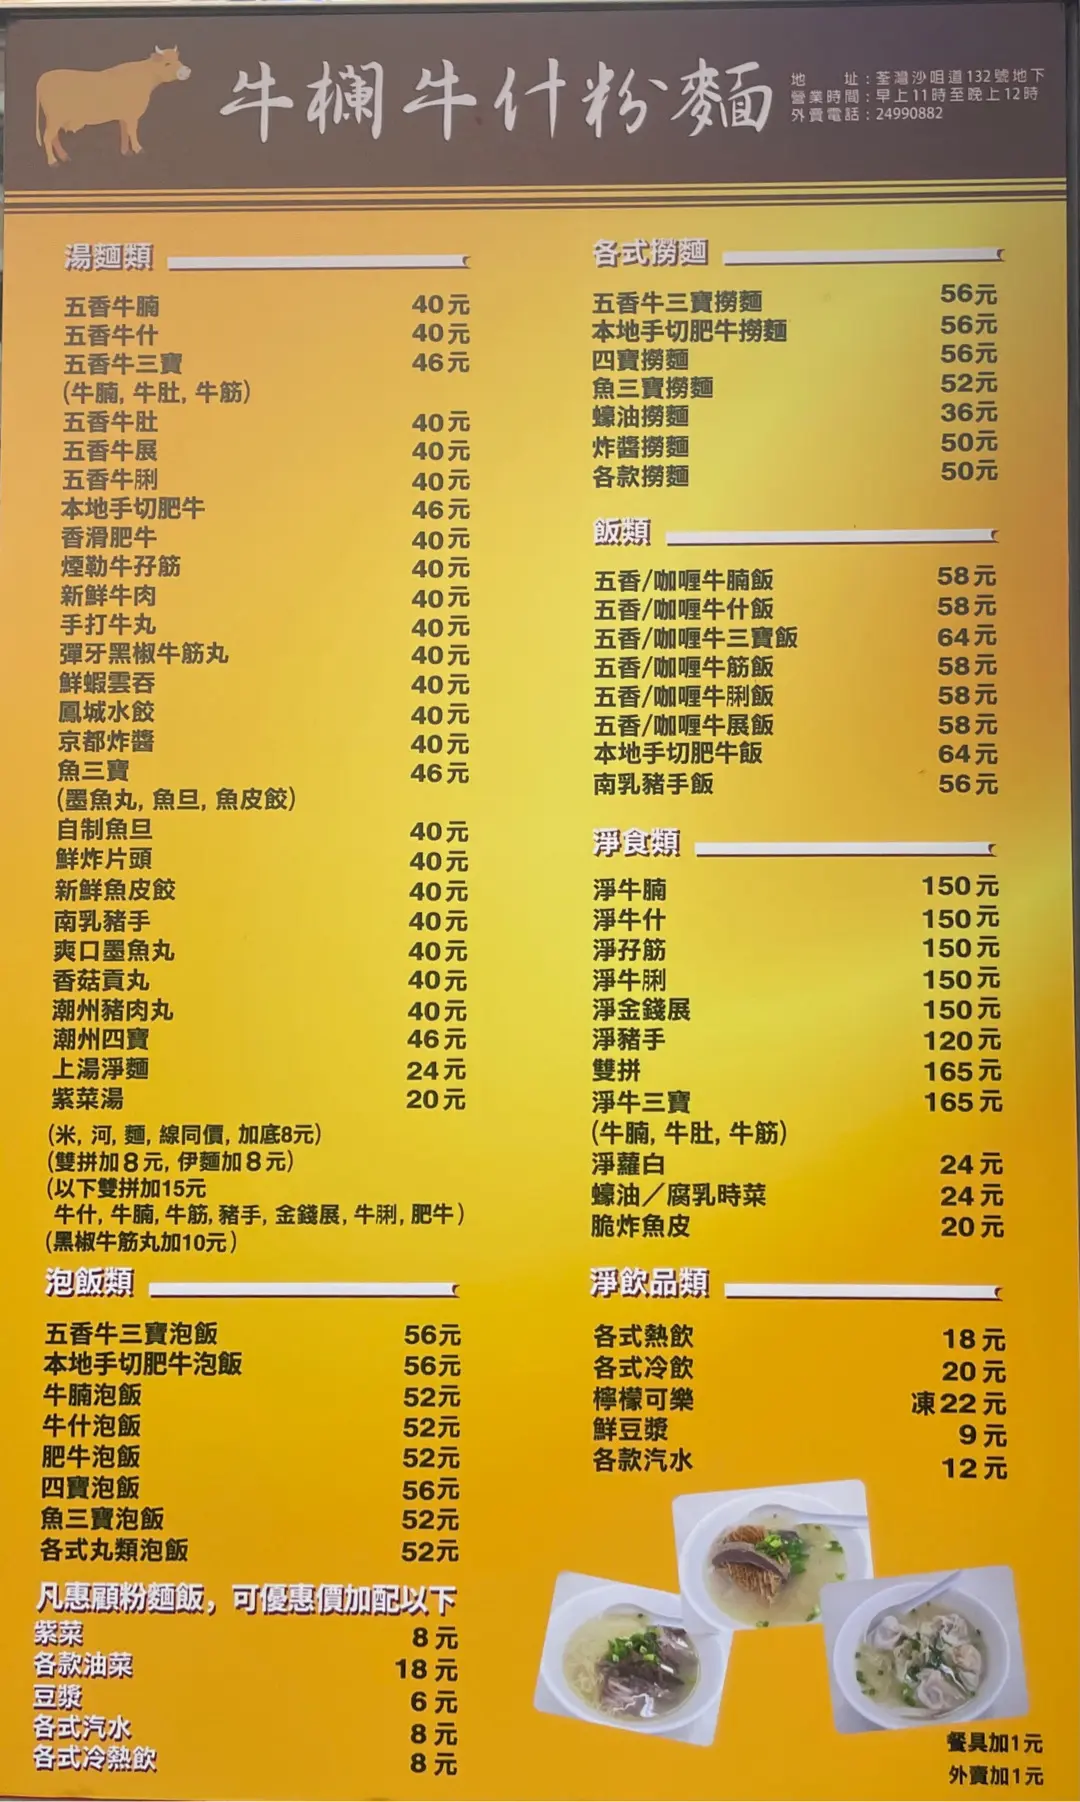 牛欄牛什粉麵
地 址：荃灣沙咀道132號地下
營業時間：早上11時至晚上12時
外賣電話：24990882
湯麵類
五香牛腩 40元
五香牛什 40元
五香牛三寶 46元
(牛腩, 牛肚, 牛筋)
五香牛肚 40元
五香牛展 40元
五香牛脷 40元
本地手切肥牛 46元
香滑肥牛 40元
煙韌牛孖筋 40元
新鮮牛肉 40元
手打牛丸 40元
彈牙黑椒牛筋丸 40元
鮮蝦雲吞 40元
鳳城水餃 40元
京都炸醬 40元
魚三寶 46元
(墨魚丸, 魚旦, 魚皮餃)
自制魚旦 40元
鮮炸片頭 40元
新鮮魚皮餃 40元
南乳豬手 40元
爽口墨魚丸 40元
香菇貢丸 40元
潮州豬肉丸 40元
潮州四寶 46元
上湯淨麵 24元
紫菜湯 20元
(米, 河, 麵, 線同價, 加底8元)
(雙拼加8元, 伊麵加8元)
(以下雙拼加15元
牛什, 牛腩, 牛筋, 豬手, 金錢展, 牛脷, 肥牛)
(黑椒牛筋丸加10元)
泡飯類
五香牛三寶泡飯 56元
本地手切肥牛泡飯 56元
牛腩泡飯 52元
牛什泡飯 52元
肥牛泡飯 52元
四寶泡飯 56元
魚三寶泡飯 52元
各式丸類泡飯 52元
凡惠顧粉麵飯，可優惠價加配以下
紫菜 8元
各款油菜 18元
豆漿 6元
各式汽水 8元
各式冷熱飲 8元
各式撈麵
五香牛三寶撈麵 56元
本地手切肥牛撈麵 56元
四寶撈麵 56元
魚三寶撈麵 52元
蠔油撈麵 36元
炸醬撈麵 50元
各款撈麵 50元
飯類
五香/咖喱牛腩飯 58元
五香/咖喱牛什飯 58元
五香/咖喱牛三寶飯 64元
五香/咖喱牛筋飯 58元
五香/咖喱牛脷飯 58元
五香/咖喱牛展飯 58元
本地手切肥牛飯 64元
南乳豬手飯 56元
淨食類
淨牛腩 150元
淨牛什 150元
淨孖筋 150元
淨牛脷 150元
淨金錢展 150元
淨豬手 120元
雙拼 165元
淨牛三寶 165元
(牛腩, 牛肚, 牛筋)
淨蘿白 24元
蠔油／腐乳時菜 24元
脆炸魚皮 20元
淨飲品類
各式熱飲 18元
各式冷飲 20元
檸檬可樂 凍22元
鮮豆漿 9元
各款汽水 12元
餐具加1元
外賣加1元